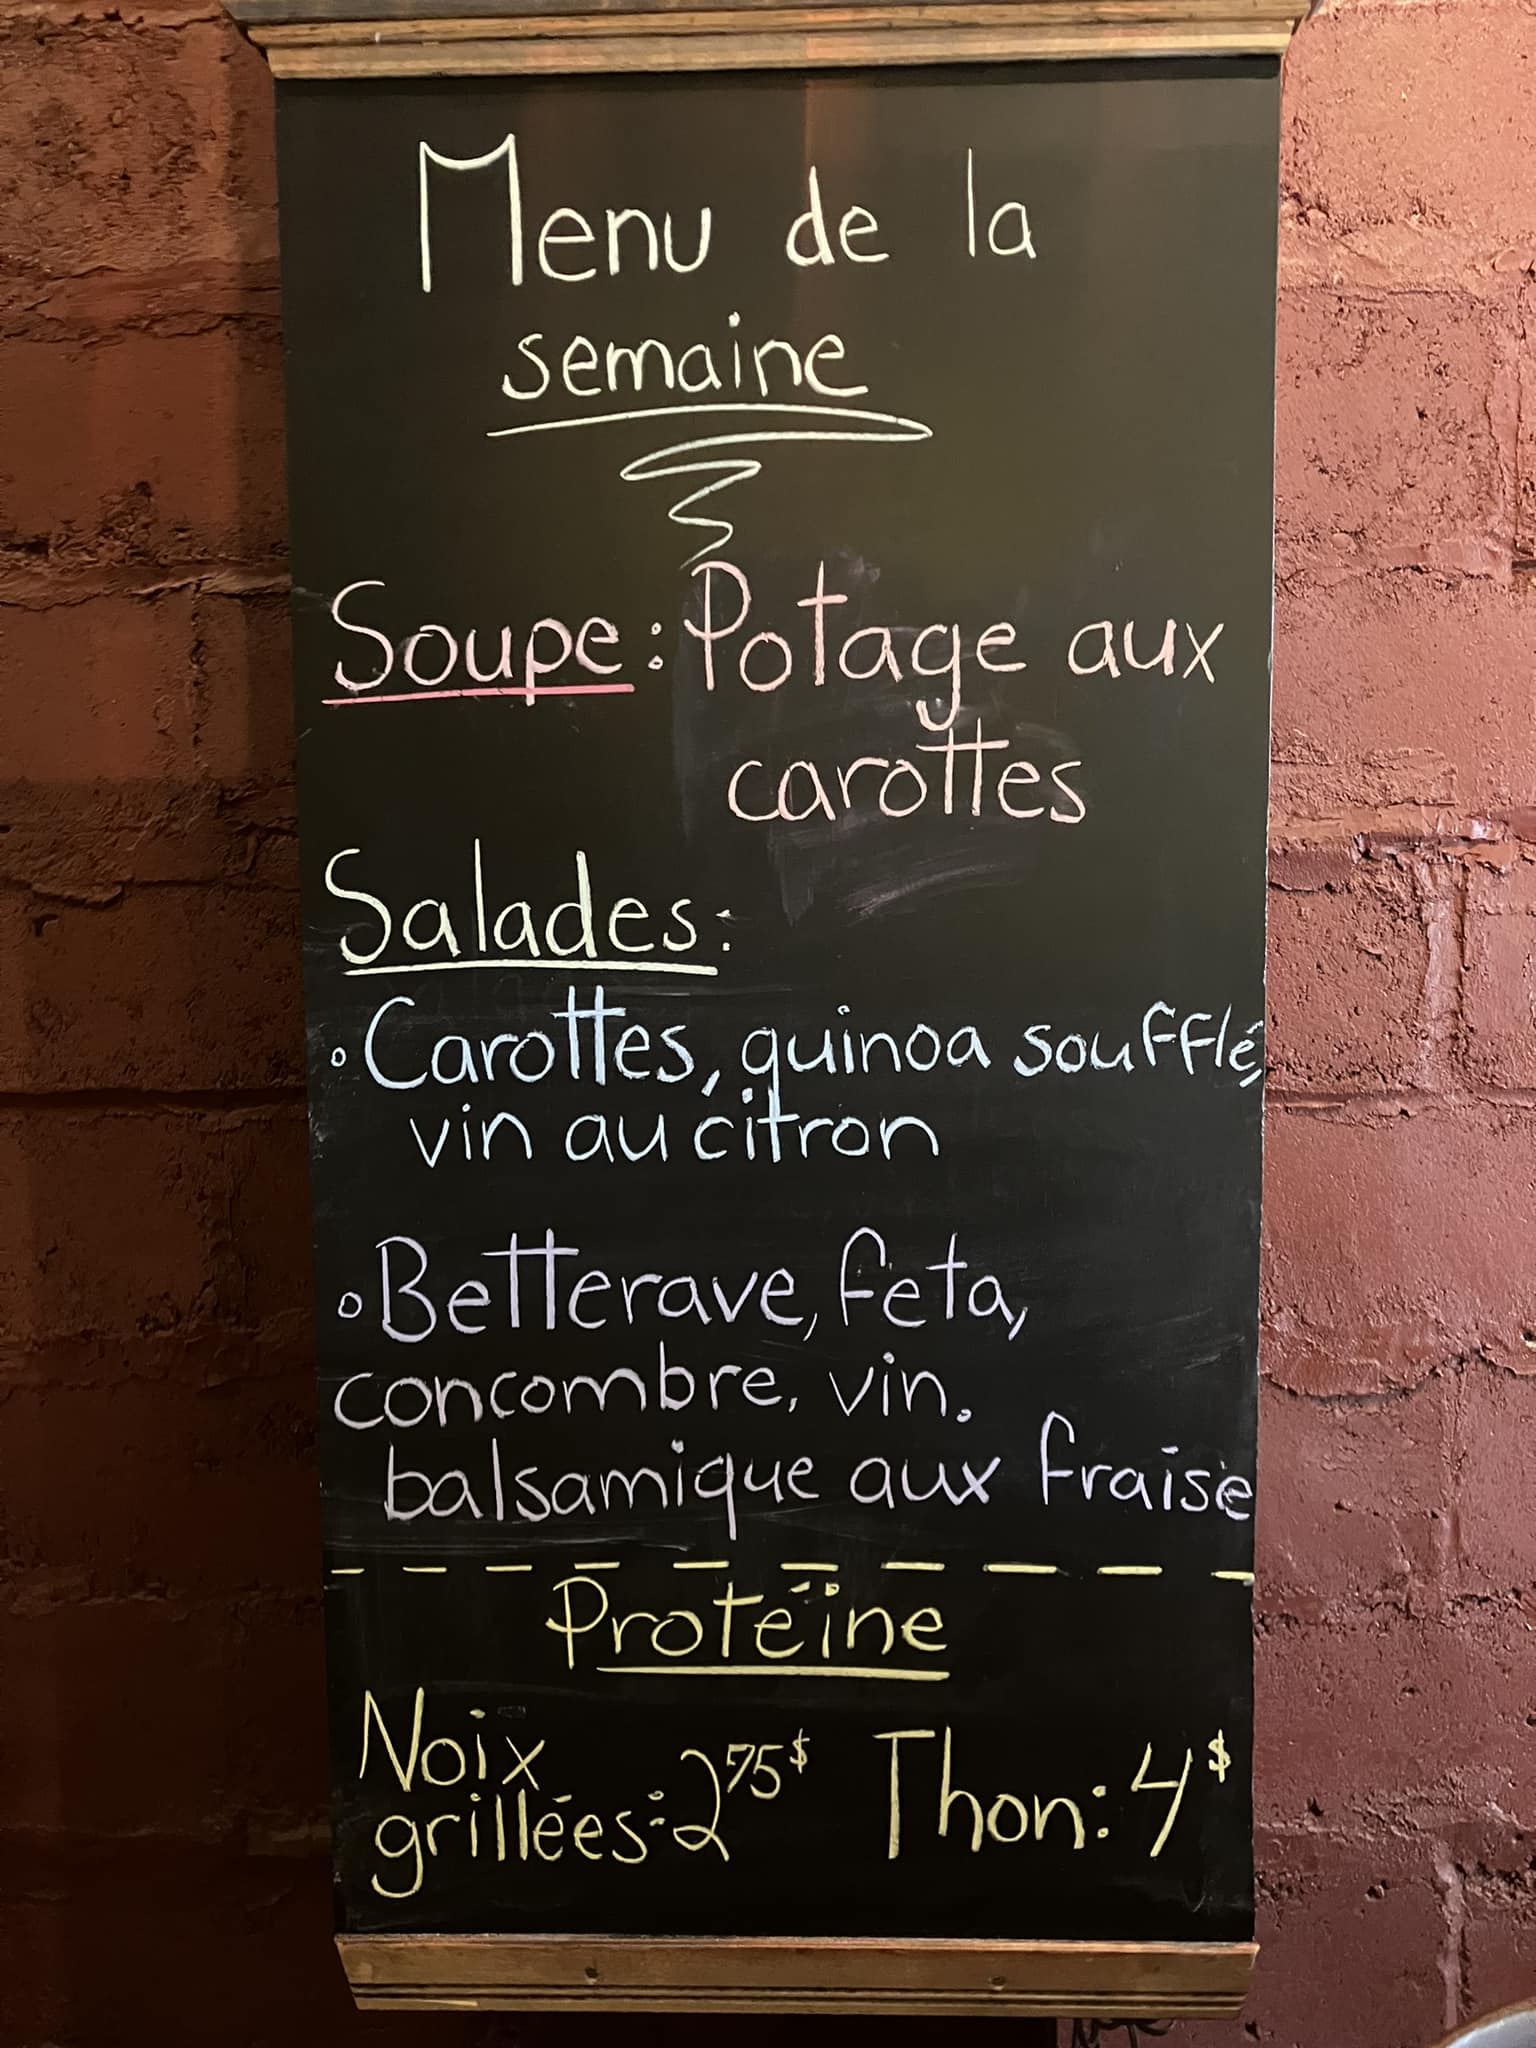 Menu de la
semaine
Soupe : Potage aux
carottes
Salades :
• Carottes, quinoa soufflé,
vin au citron
• Betterave, feta,
concombre, vin.
balsamique aux fraise
Protéine
Noix
grillées : 2 75 $ Thon : 4 $